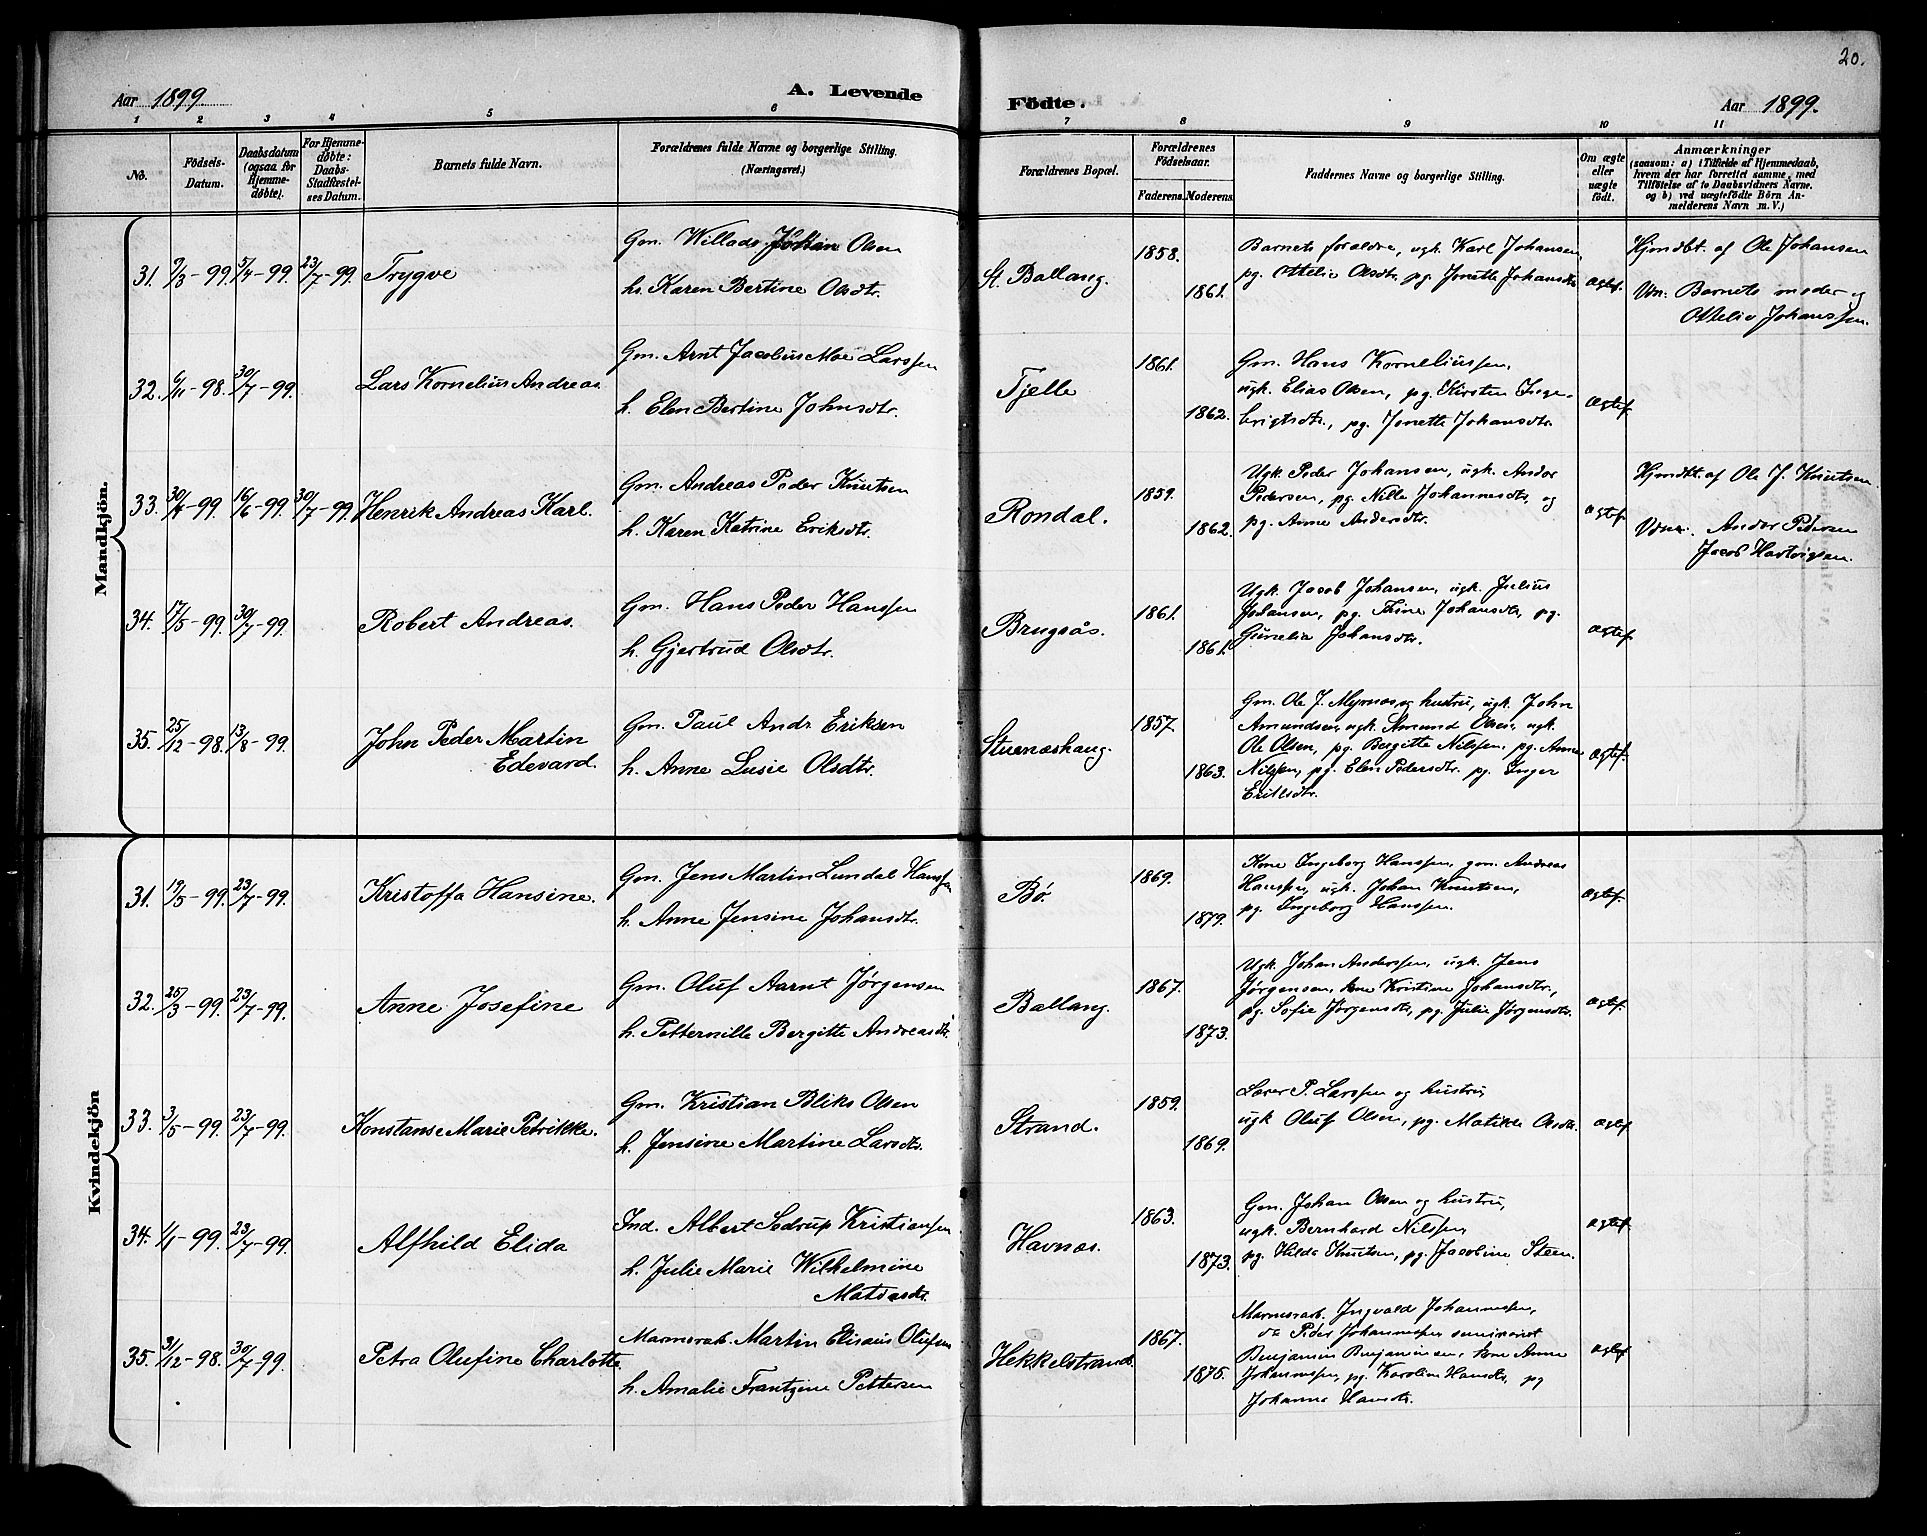 20.
Aar 1899.
A. Levende
Födte.
Aar 1899.
1 2 3 4 5 6 7 8 9 10 11
No.
Födsels-
Datum.
Daabsdatum
(ogsaa for
Hjemme-
döbte).
For Hjemme-
döbte:
Daabs-
Stadfæstel-
ses Datum.
Barnets fulde Navn.
Forældrenes fulde Navne og borgerlige Stilling.
(Næringsvei.)
Forældrenes Bopæl.
Forældrenes
Födselsaar.
Faderens. Moderens.
Faddernes Navne og borgerlige Stilling.
Om ægte
eller
uægte
födt.
Anmærkninger
(saasom: a) i Tilfælde af Hjemmedaab,
hvem der har forrettet samme, med
Tilföielse af to Daabsvidners Navne.
og b) ved uægtefödte Börn An-
melderens Navn m. V.)
Mandkjön.
31. 9/3-99. 5/4-99. 23/7-99. Trygve
Gm. Willads Johan Olsen
h. Karen Bertine Olsdtr.
St. Ballang.
1858.
1861.
Barnets forældre, ugk. Karl Johansen,
pg. Ottelie Olsdtr. pg. Jonette Johansdtr.
Ægtef.
Hjmdbt. af Ole Johansen
Vn: Barnets moder og
Ottelie Johanssen.
32. 6/11-98. 30/7-99. Lars Kornelius Andreas.
Gm. Arnt Jacobus Moe Larssen
h. Elen Bertine Johnsdtr.
Tjelle
1861.
1862.
Gm. Hans Korneliussen,
ugk. Elias Olsen, pg. Kirsten Inge-
brigtsdtr., pg. Jonette Johansdtr.
Ægtef.
33. 30/4-99. 16/6-99. 30/7-99. Henrik Andreas Karl.
Gm. Andreas Peder Knutsen
h. Karen Katrine Eriksdtr.
Rondal.
1859.
1862.
Ugk. Peder Johansen, ugk. Andor
Pedersen, pg. Nille Johannesdtr, og
pg. Anne Andersdtr.
Ægtef.
Hjmdbt. af Ole J. Knutsen.
Vdner: Andor Pedersen
Jacob Hartvigsen.
34. 17/5-99. 30/7-99. Robert Andreas.
Gm. Hans Peder Hanssen
h. Gjertrud Olsdtr.
Brugsås.
1861.
1861.
Ugk. Jacob Johansen, ugk. Julius
Johansen, pg. Trine Johansdtr, pg.
Gunelie Johansdtr.
Ægtef.
35. 25/12-98. 13/8-99. John Peder Martin
Edevard.
Gm. Paul Andr Eriksen
h. Anne Lusie Olsdtr.
Stuenæshaug.
1857.
1863.
Gm. Ole J. Myrnæs og hustru, ugk. John
Amundsen, ugk. Amund Olsen, ugk.
Ole Olsen, pg. Bergitte Nilssen, pg. Anne
Nilssen, pg. Elen Pedersdtr. pg. Inger
Eriksdtr.
Ægtef.
Kvindekjön
31. 19/5-99. 23/7-99. Kristoffa Hansine.
Gm. Jens Martin Lundal Hanssen
h. Anne Jensine Johansdtr.
Bø.
1869.
1879.
Kone Ingeborg Hanssen, gm. Andreas
Hanssen, ugk. Johan Knutsen,
pg. Ingeborg Hanssen.
Ægtef.
32. 25/3-99. 23/7-99. Anne Josefine
Gm. Oluf Aarnt Jørgensen
h. Petternille Bergitte Andreasdtr.
Ballang.
1867.
1873.
Ugk. Johan Anderssen, ugk. Jens
Jørgensen, kone Kristine Johansdtr.,
pg. Sofie Jørgensdtr, pg. Julie Jørgensdtr.
Ægtef.
33. 3/5-99. 23/7-99. Konstanse Marie Petrikke.
Gm. Kristian Bliks Olsen
h. Jensine Martine Larsdtr.
Strand.
1859.
1869.
Lærer P. Larssen og hustru,
ugk Oluf Olsen, pg. Matilde Olsdtr.
Ægtef
34. 1/1-99. 23/7-99. Alfhild Elida
Ind. Albert Sodrup Kristiansen
h. Julie Marie Wilhelmine
Matiasdtr.
Havnæs.
1863.
1873.
Gm. Johan Olsen og hustru,
ugk. Bernhard Nilssen,
pg. Hilda Knutsen, pg. Jacobine Steen.
Ægtef
35. 31/12-98. 30/7-99. Petra Olufine Charlotte
Marmorarb. Martin Elisæus Olufsen
h. Amalie Frantzine Pettersen
Hekkelstrand.
1867.
1875.
Marmorarb. Ingvald Johannessen,
do Peder Johannessen, seminarist
Benjamin Benjaminsen, kone Anne
Johannessen, pg. Karoline Hansdtr, pg
Johanna Hansdtr.
Ægtef